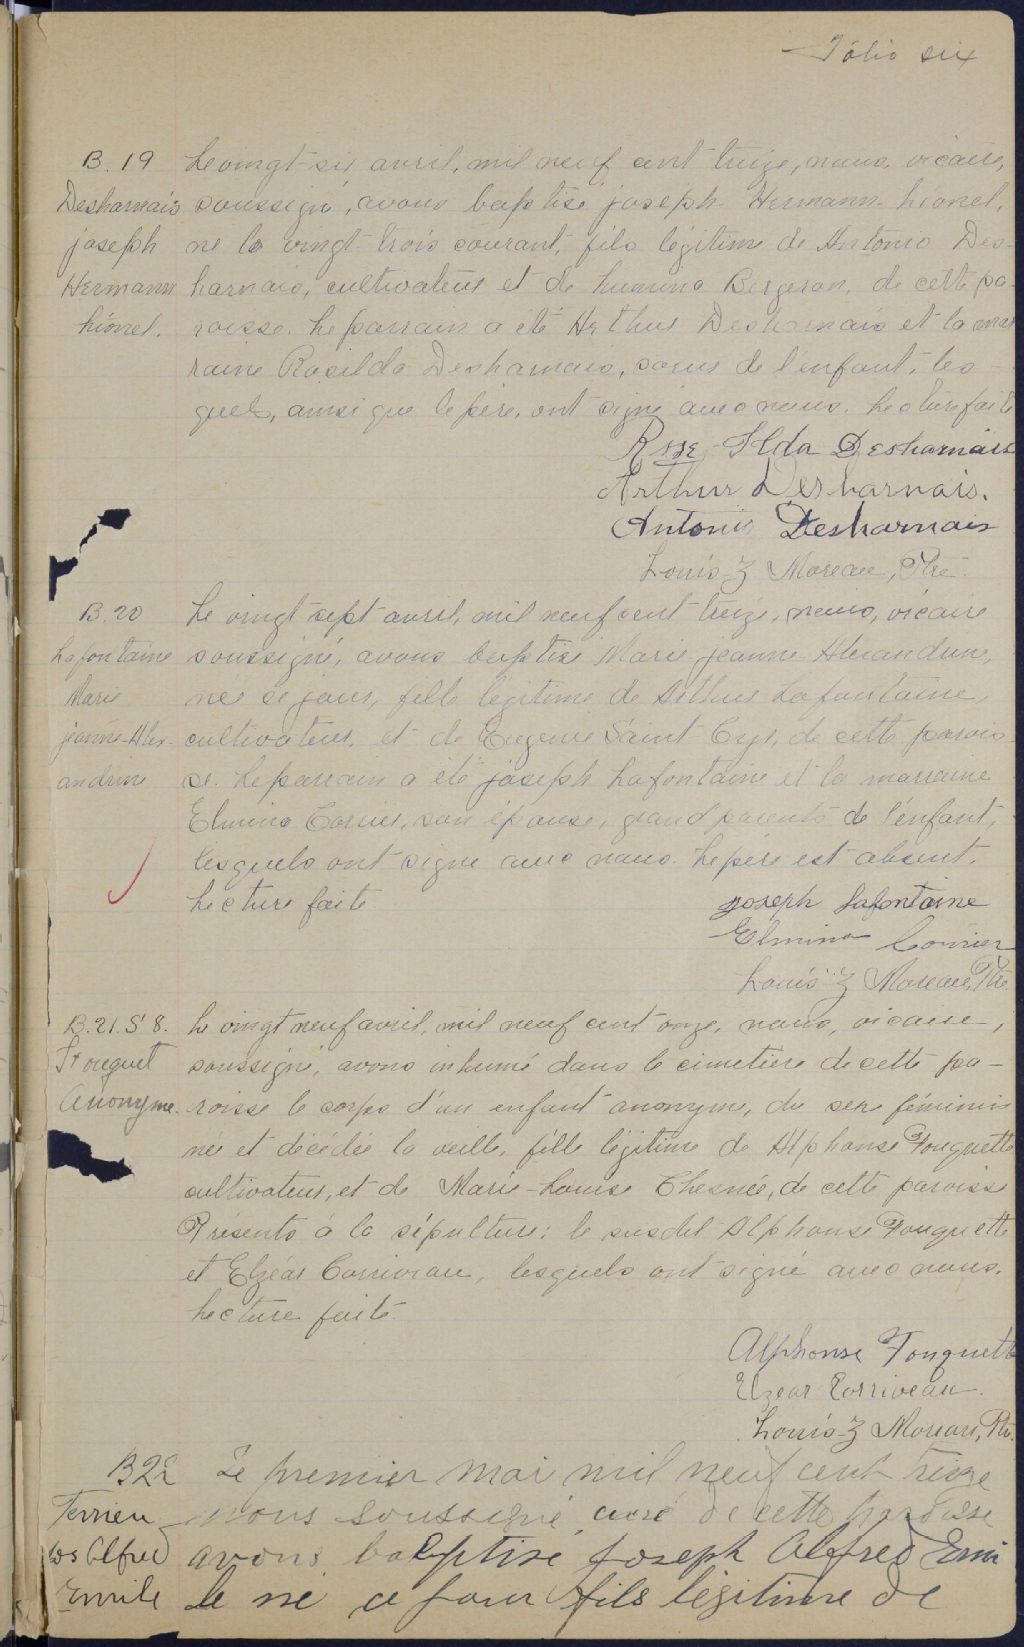 Folio six
B. 19 Le vingt-six avril, mil neuf cent treize, nous, vicaire,
Desharnais soussigné, avons baptisé joseph Hermann Lionel,
joseph né le vingt-trois courant, fils légitime de Antonio Des-
Hermann harnais, cultivateur et de Bergeron, de cette pa-
Lionel. roisse. Le parrain a été Arthur Desharnais et la mar
raine Rosilda Desharnais, soeur de l'enfant, les-
quels, ainsi que le père, ont signé avec nous. Lecture faite
Rose-Ilda Desharnais
Arthur Desharnais.
Antonio Desharnais
Louis-Z Moreau, Ptre.
B. 20 Le vingt-sept avril, mil neuf cent treize, nous, vicaire
Lafontaine soussigné, avons baptisé Marie-jeanne-Alexandrine,
Marie née ce jour, fille légitime de Arthur Lafontaine,
jeanne-Alex- cultivateur, et de Eugenie Saint-Cyr, de cette parois
andrine se. Le parrain a été joseph Lafontaine et la marraine
Elmina Courier, son épouse, grand parents de l'enfant,
lesquels ont signé avec nous. Le père est absent.
Lecture faite
joseph Lafontaine
Elmina Courier
Louis-Z Moreau, Ptre.
B. 21. S 8. Le vingt neuf avril, mil neuf cent onze, nous, vicaire,
Fouquet soussigné, avons inhumé dans le cimetière de cette pa-
Anonyme. roisse le corps d'un enfant anonyme, du sexe féminin
née et décédée la veille, fille légitime de Alphonse Fouquette
cultivateur, et de Marie-Louise Chesnée, de cette paroisse
Présents à la sépulture: le susdit Alphonse Fouquette
et Elzear Corriveau, lesquels ont signé avec nous.
Lecture faite.
Alphonse Fouquette
Elzear Corriveau.
Louis-Z Moreau, Ptr.
B22 Le premier mai mil neuf cent treize
Terrien nous soussigné curé de cette paroisse
Jos Alfred avons baptisé Joseph Alfred Emi
Emile le né ce jour fils légitime de